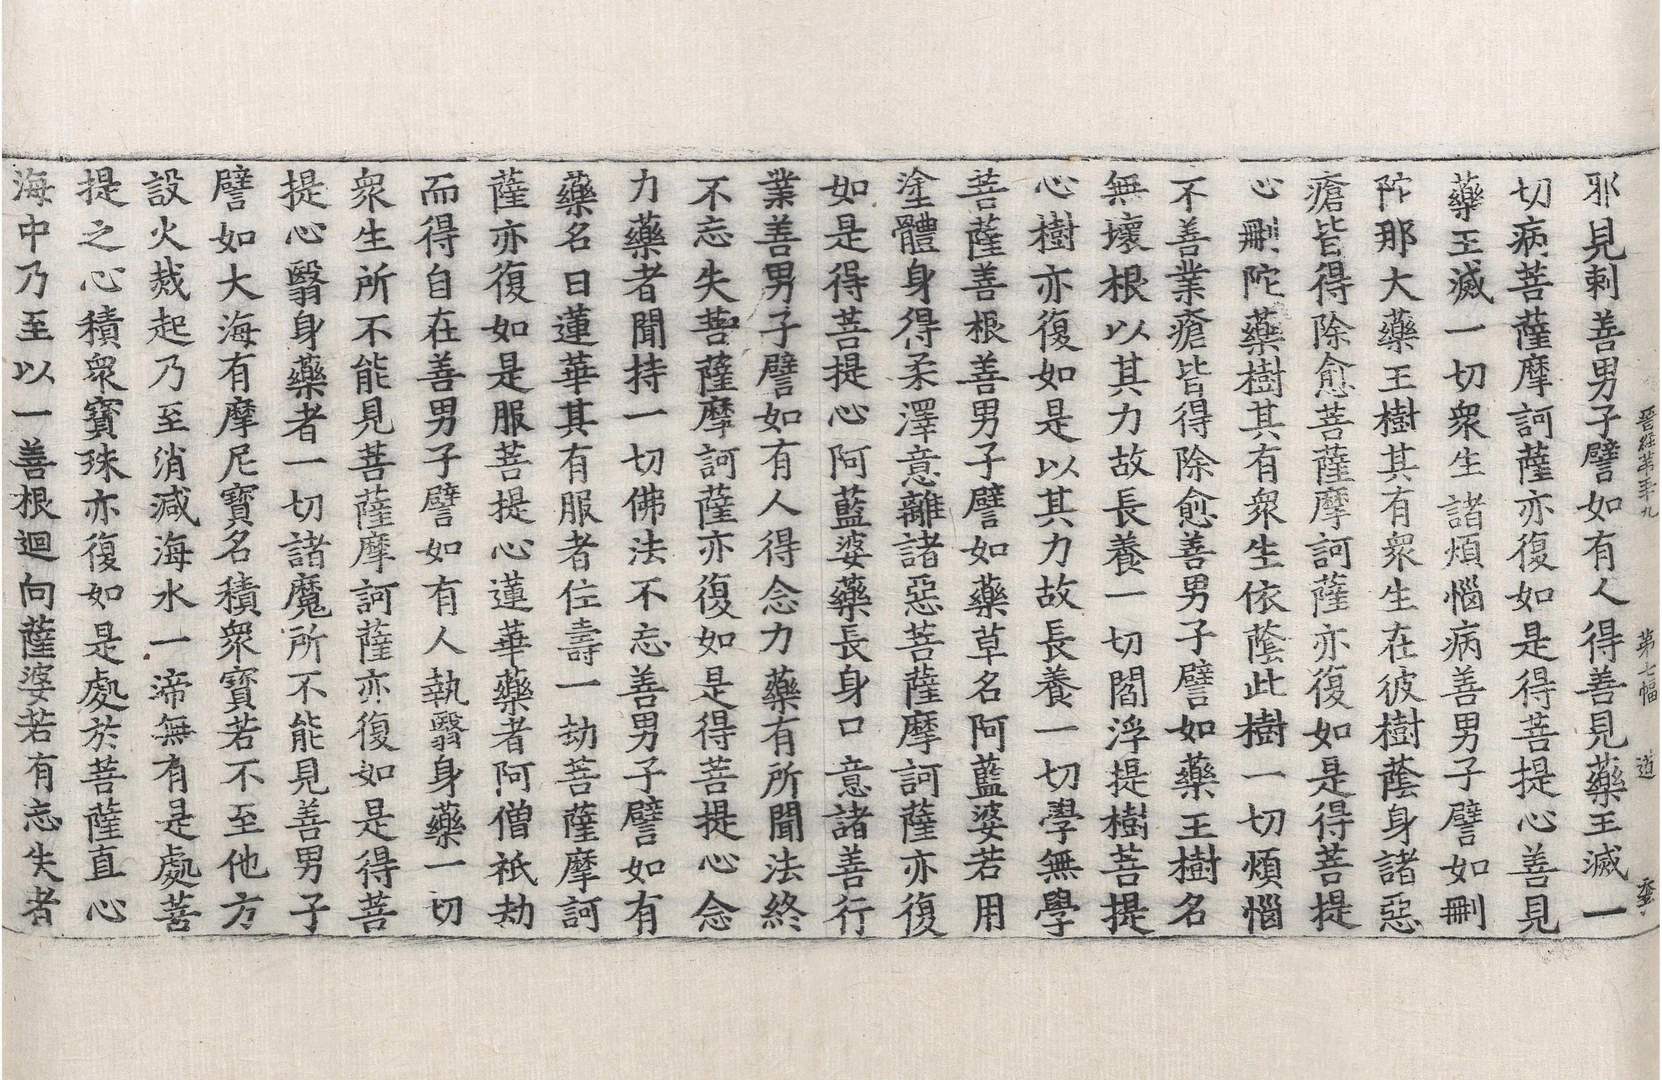 晋經第五十九　第七幅　道
邪見刺善男子譬如有人得善見藥王滅一
切病菩薩摩訶薩亦復如是得菩提心善見
藥王滅一切衆生諸煩惱病善男子譬如刪
陁那大藥王樹其有衆生在彼樹蔭身諸惡
瘡皆得除愈菩薩摩訶薩亦復如是得菩提
心刪陀藥樹其有衆生依蔭此樹一切煩惱
不善業瘡皆得除愈善男子譬如藥王樹名
無壞根以其力故長養一切閻浮提樹菩提
心樹亦復如是以其力故長養一切學無學
菩薩善根善男子譬如藥草名阿藍婆若用
塗體身得柔澤意離諸惡菩薩摩訶薩亦復
如是得菩提心阿藍婆藥長身口意諸善行
業善男子譬如有人得念力藥有所聞法終
不忘失菩薩摩訶薩亦復如是得菩提心念
力藥者聞持一切佛法不忘善男子譬如有
藥名曰蓮華其有服者住壽一劫菩薩摩訶
薩亦復如是服菩提心蓮華藥者阿僧祇劫
而得自在善男子譬如有人執翳身藥一切
衆生所不能見菩薩摩訶薩亦復如是得菩
提心翳身藥者一切諸魔所不能見善男子
譬如大海有摩尼寶名積衆寶若不至他方
設火烖起乃至消減海水一渧無有是處菩
提之心積衆寶珠亦復如是處於菩薩直心
海中乃至以一善根迴向薩婆若有忘失者